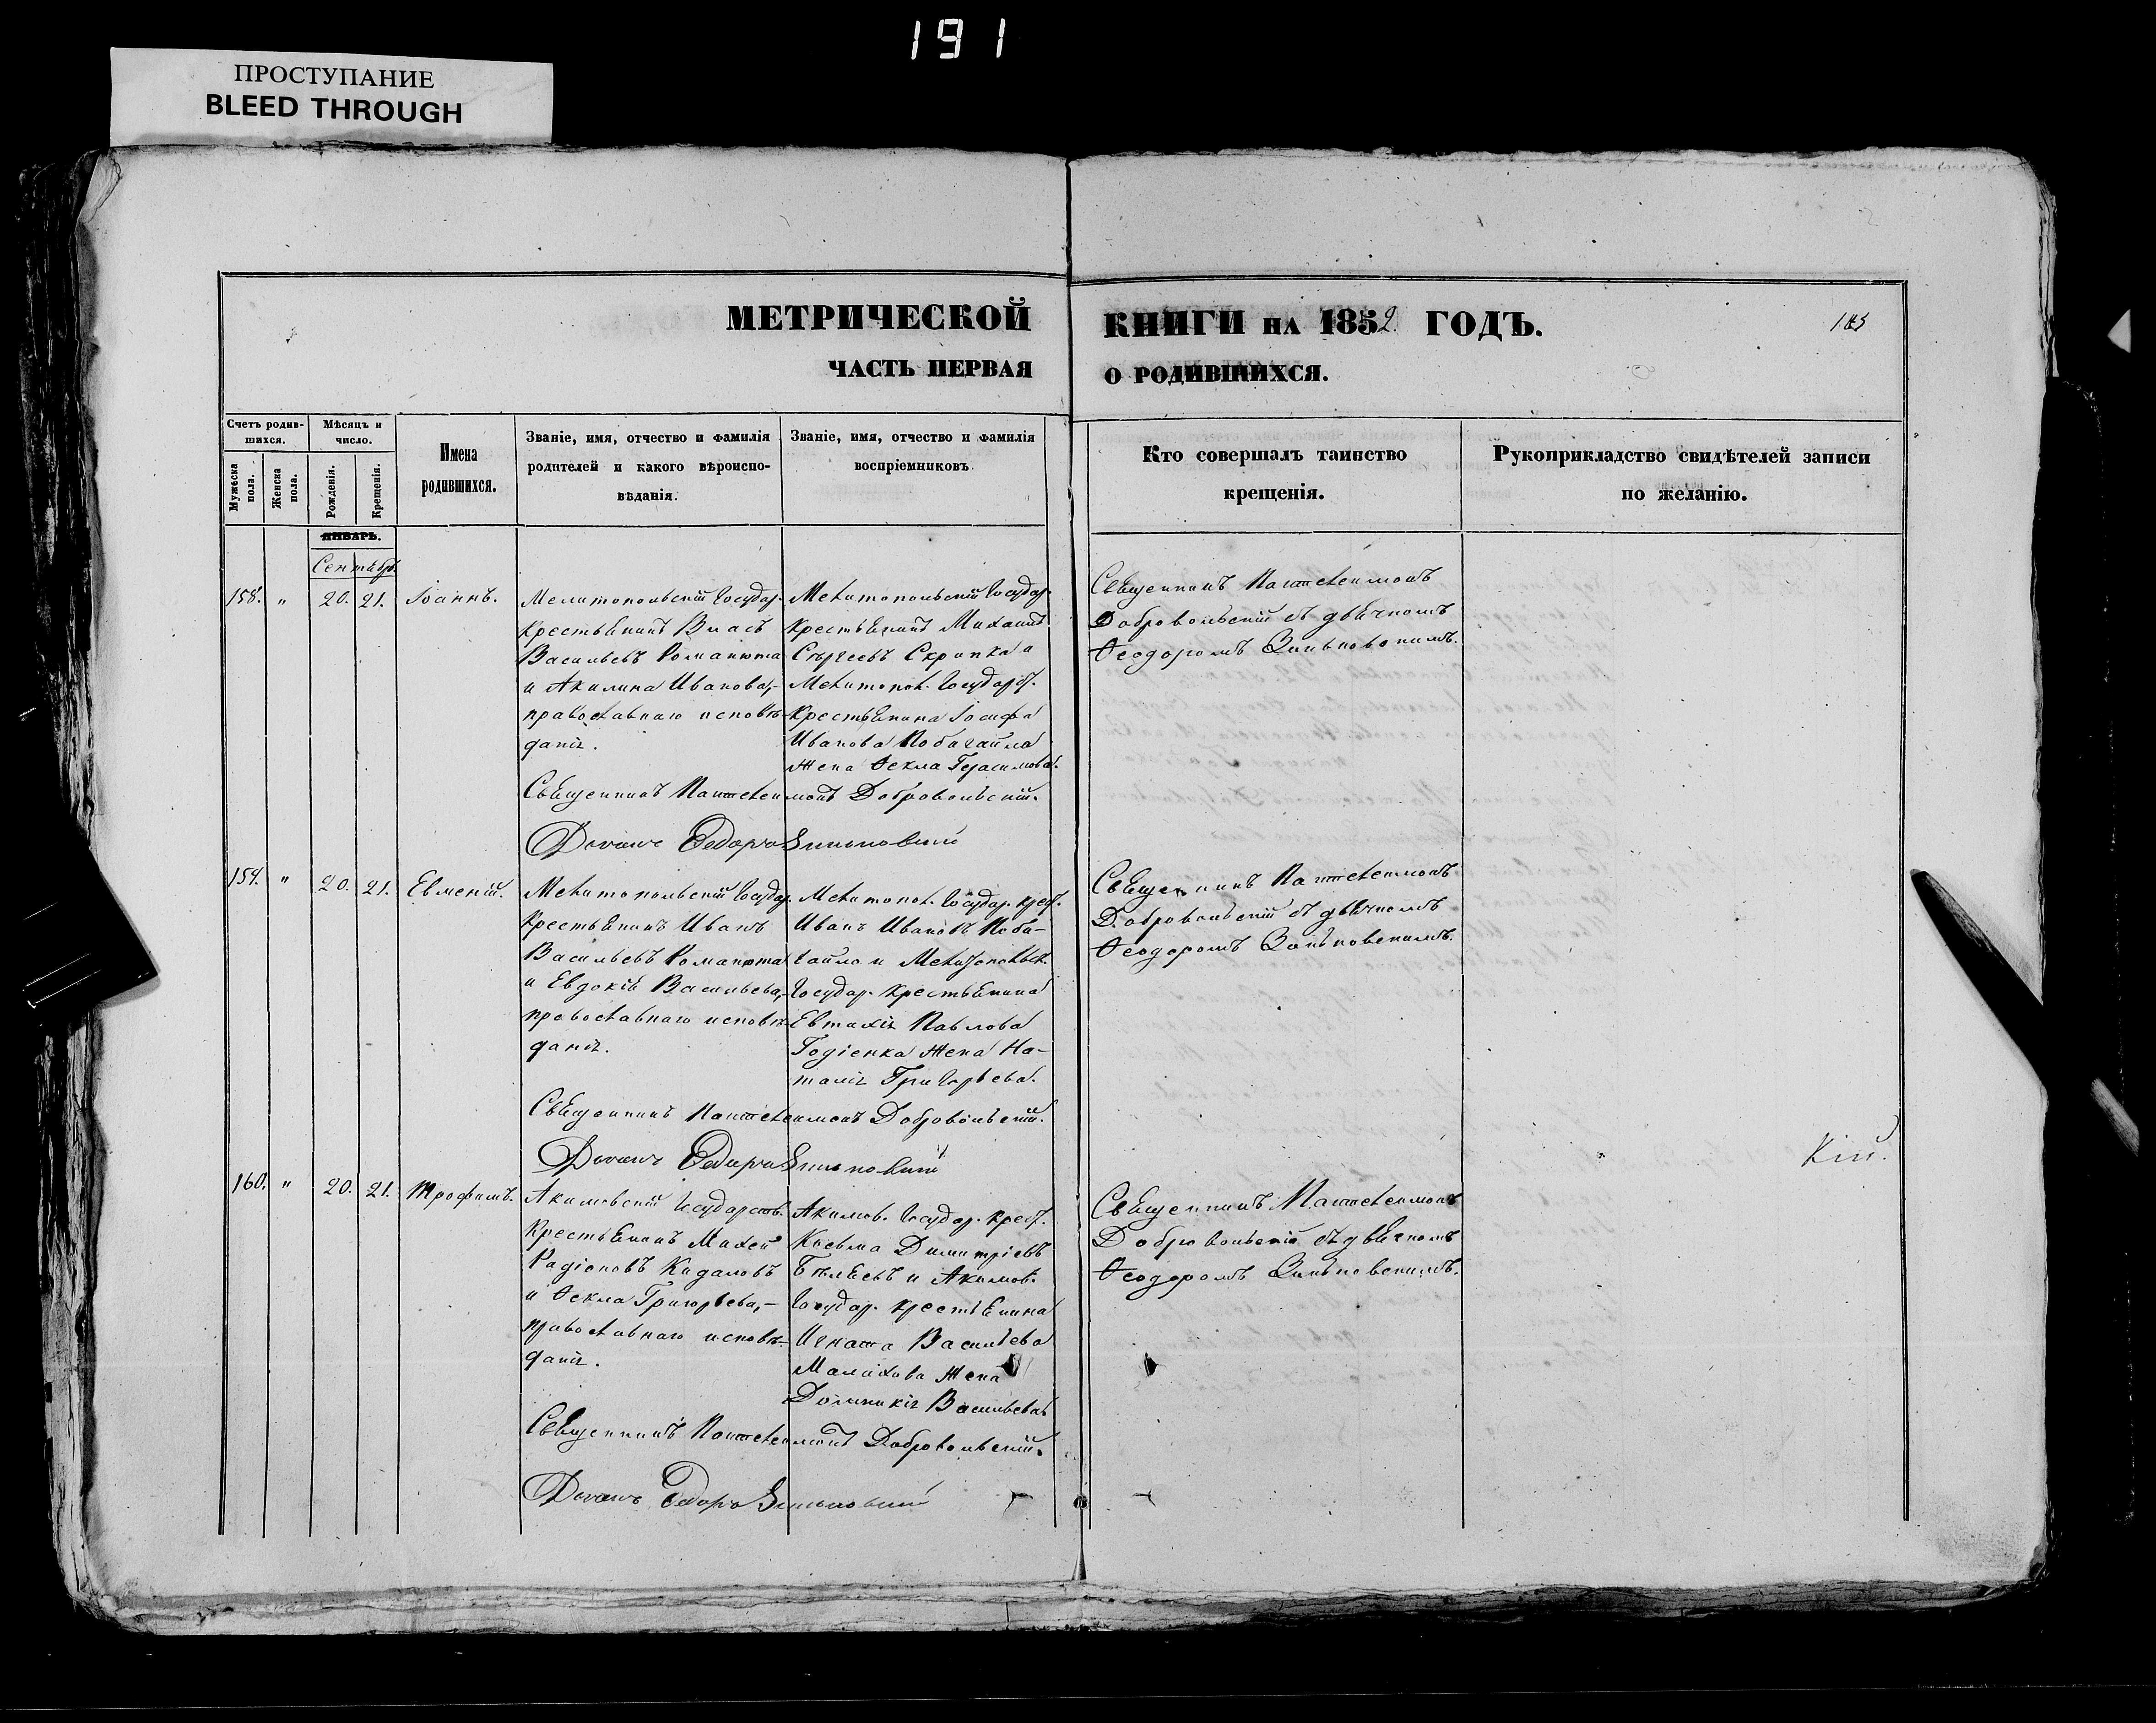 191
ПРОСТУПАНИЕ
BLEED THROUGH
МЕТРИЧЕСКОЙ
ЧАСТЬ ПЕРВАЯ
КНИГИ НА 1852 ГОДЪ.
О РОДИВШИХСЯ.
Счетъ родив-
шихся.
Мужеска
пола.
Женска
пола.
Мѣсяцъ и
число.
Рожденія.
Крещенія.
Имена
родившихся.
Званіе, имя, отчество и фамилія
родителей и какого вѣроиспо-
вѣданія.
Званіе, имя, отчество и фамилія
воспріемниковъ.
Кто совершалъ таинство
крещенія.
Рукоприкладство свидѣтелей записи
по желанію.
ЯНВАРЬ.
Сентябр.
158. " 20. 21. Іоаннъ.
Мелитопольскій Государ.
крестьянинъ Власъ
Васильевъ Романюта
и Акилина Иванова,-
православнаго исповѣ-
данія.
Мелитопольскій Государ.
крестьянинъ Михаилъ
Сергеевъ Скрипка и
Мелитопол. Государст.
крестьянина Іосифа
Иванова
жена Ѳекла Герасимова.
Священникъ Пантелеимонъ
Добровольскій съ дьячкомъ
Ѳеодоромъ
Священникъ Пантелеимонъ Добровольскій.
Дьячокъ Федоръ
159. " 20. 21. Евменій.
Мелитопольскій Государ.
крестьянинъ Иванъ
Васильевъ Романюта
и Евдокія Васильева,-
православнаго исповѣ-
данія.
Мелитопол. Государ. крест.
Иванъ Ивановъ
и Мелитопольск.
Государ. крестьянина
Евтихія Павлова
Годіенка жена На-
талія Григорьева.
Священникъ Пантелеимонъ
Добровольскій съ дьячкомъ
Ѳеодоромъ
Священникъ Пантелеимонъ Добровольскій.
Дьячокъ Федоръ
кій.
160. " 20. 21. Трофимъ.
Акимовскій Государств.
крестьянинъ
Радіоновъ
и Ѳекла Григорьева,-
православнаго исповѣ-
данія.
Акимов. Государ. крест.
Косьма Димитріевъ
Бѣляевъ и Акимов.
Государ. крестьянина
Игната Васильева
Малахова жена
Домникія Васильева
Священникъ Пантелеимонъ
Добровольскій съ дьячкомъ
Ѳеодоромъ
Священникъ Пантелеимонъ Добровольскій.
Дьячокъ Федоръ